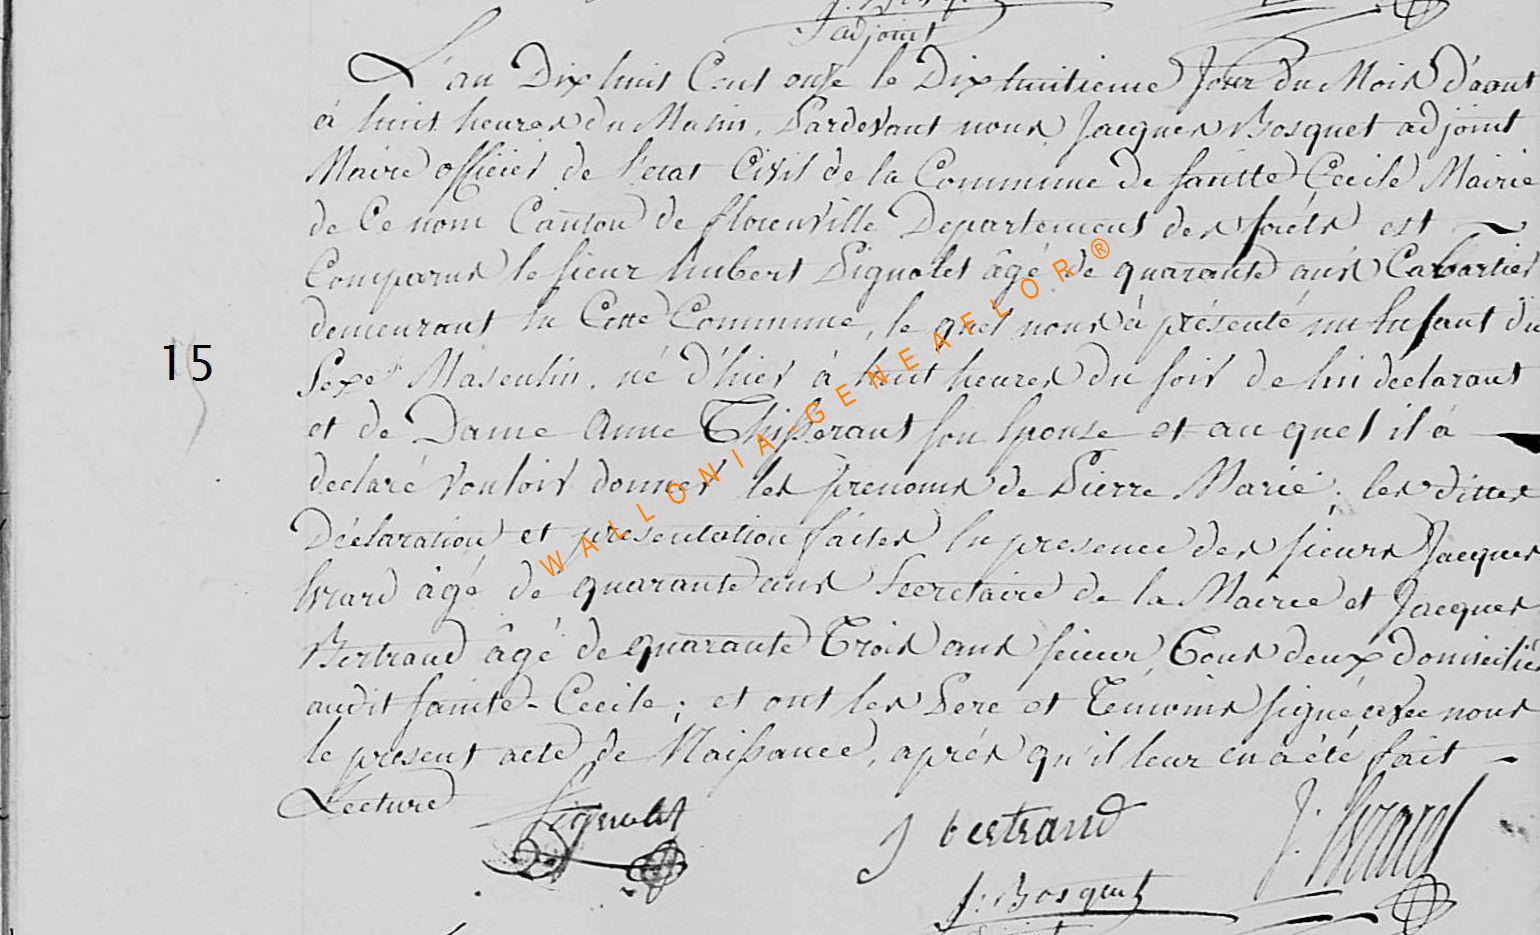 J. Bosquet
adjoint
L'an Dix huit Cent onze le Dix huitieme Jour du Mois d'aout
à huit heures du Matin, Pardevant nous Jacques Bosquet adjoint
Maire officier de l'etat Civil de la Commune de Sainte Cecile Mairie
de Ce nom Canton de florenville Departement des forêts est
Comparus le sieur hubert Pignolet âgé de quarante ans Cabartier
demeurant En Cette Commune, le quel nous à présenté un Enfant du
Sexe Masculin, né d'hier à huit heures du soir de lui declarant
et de Dame Anne Thisserant son Epouse et au quel il à
declaré vouloir donner les prenoms de Pierre Marie; les dittes
Déclaration et presentation faites En presence des sieurs Jacques
Evrard âgé de quarante ans Secretaire de la Mairie et Jacques
Bertrand âgé de quarante Trois ans scieur, Tous deux domiciliés
15
audit Sainte-Cecile; et ont les Pere et Témoins signé avec nous
le present acte de Naissance, aprés qu'il leur en a été fait
Lecture
Pignolet
J bertrand
J. Evrard
J. Bosquet
WALLONIA-GENEAFLOR®